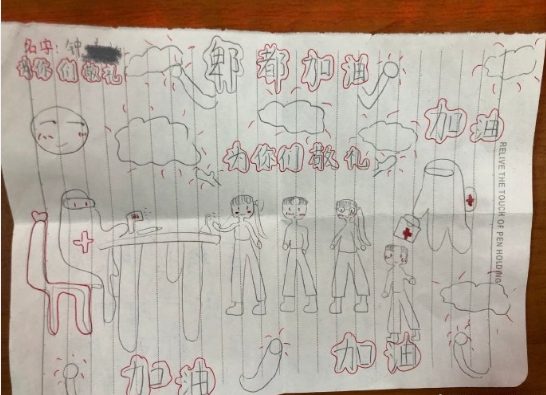 名字:钟
为你们敬礼
郫都加油
加油
为你们敬礼
RELIVE THE TOUCH OF PEN HOLDING
加油
加油